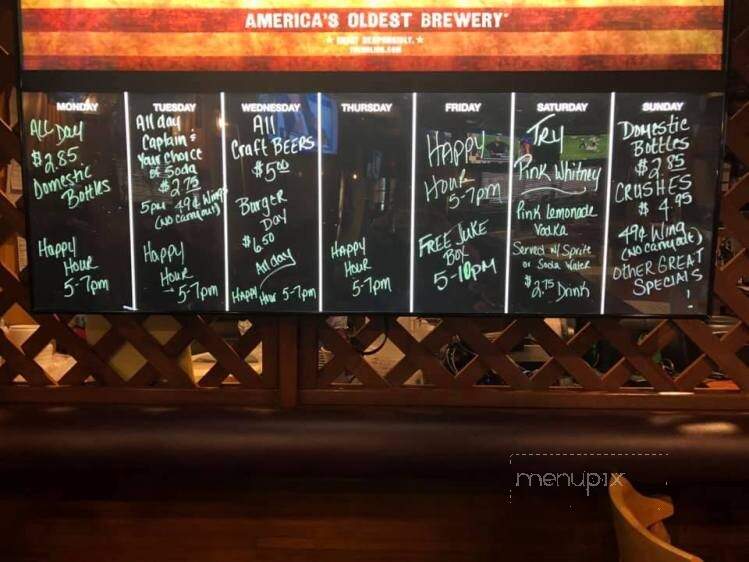 AMERICA'S OLDEST BREWERY®
MONDAY
All Day
$2.85
Domestic
Bottles
Happy
Hour
5-7pm
TUESDAY
All day
Captain &
Your Choice
of Soda
$2.75
5pm 49¢ Wings
(no carryout)
Happy
Hour
5-7pm
WEDNESDAY
All
Craft BEERS
$5.00
Burger
Day
$6.50
All day
Happy Hour 5-7pm
THURSDAY
Happy
Hour
5-7pm
FRIDAY
Happy
Hour
5-7pm
FREE Juke
Box
5-10pm
SATURDAY
Try
Pink Whitney
Pink Lemonade
Vodka
Served w/ Sprite
or Soda Water
$2.75 Drink
SUNDAY
Domestic
Bottles
$2.85
CRUSHES
$4.95
49¢ Wing
(no carryout)
OTHER GREAT
SPECIALS
!
menupix